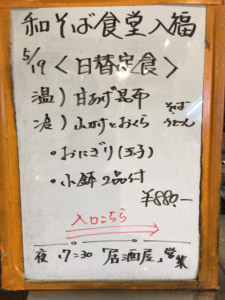 和そば食堂入福
5/19 <日替定食>
温) 甘あげ昆布 そば
冷) 山かけとおくら うどん
・おにぎり(玉子)
・小鉢2品付
¥880.-
入口こちら
夜 17:30 「居酒屋」営業